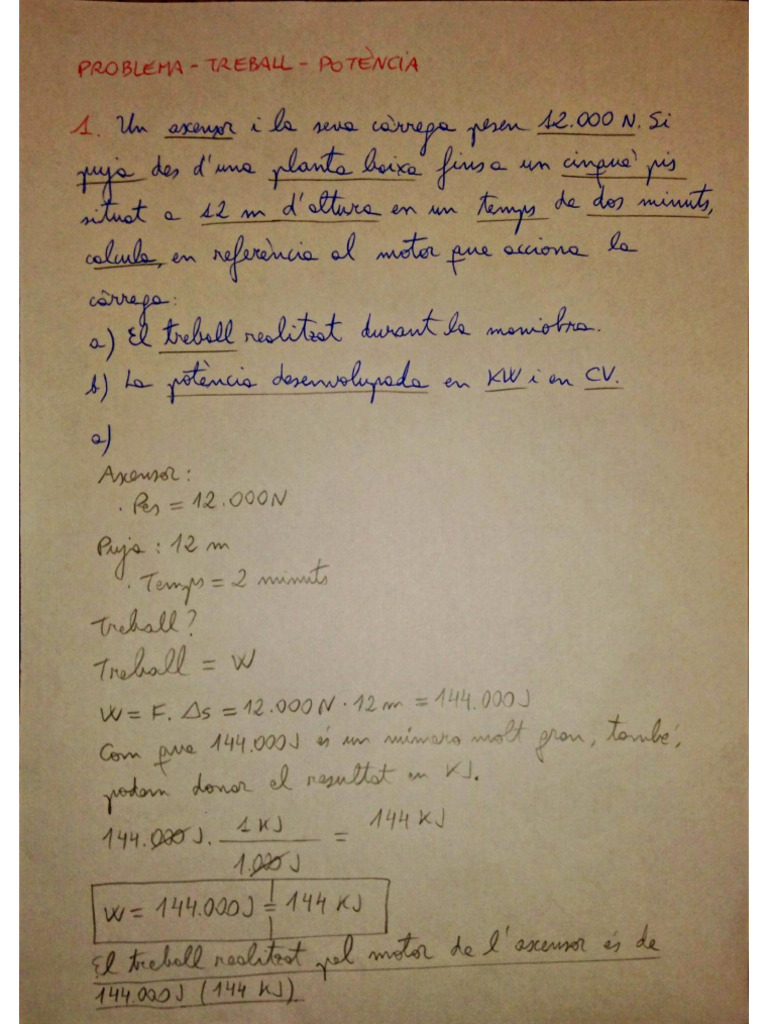 PROBLEMA - TREBALL - POTÈNCIA
1. Un axensor i la seva càrrega pesen 12.000 N. Si
puja des d'una planta baixa fins a un cinquè pis
situat a 12 m d'altura en un temps de dos minuts,
calcula, en referència al motor que acciona la
càrrega:
a) El treball realitzat durant la maniobra.
b) La potència desenvolupada en KW i en CV.
a)
Axensor:
· Pes = 12.000N
Puja : 12 m
· Temps = 2 minuts
Treball?
Treball = W
W = F. Δs = 12.000N · 12m = 144.000J
Com que 144.000J és un número molt gran, també,
podem donar el resultat en KJ.
144.000J. 1 KJ / 1.000J = 144 KJ
W = 144.000J = 144 KJ
El treball realitzat pel motor de l'axensor és de
144.000J (144 KJ)